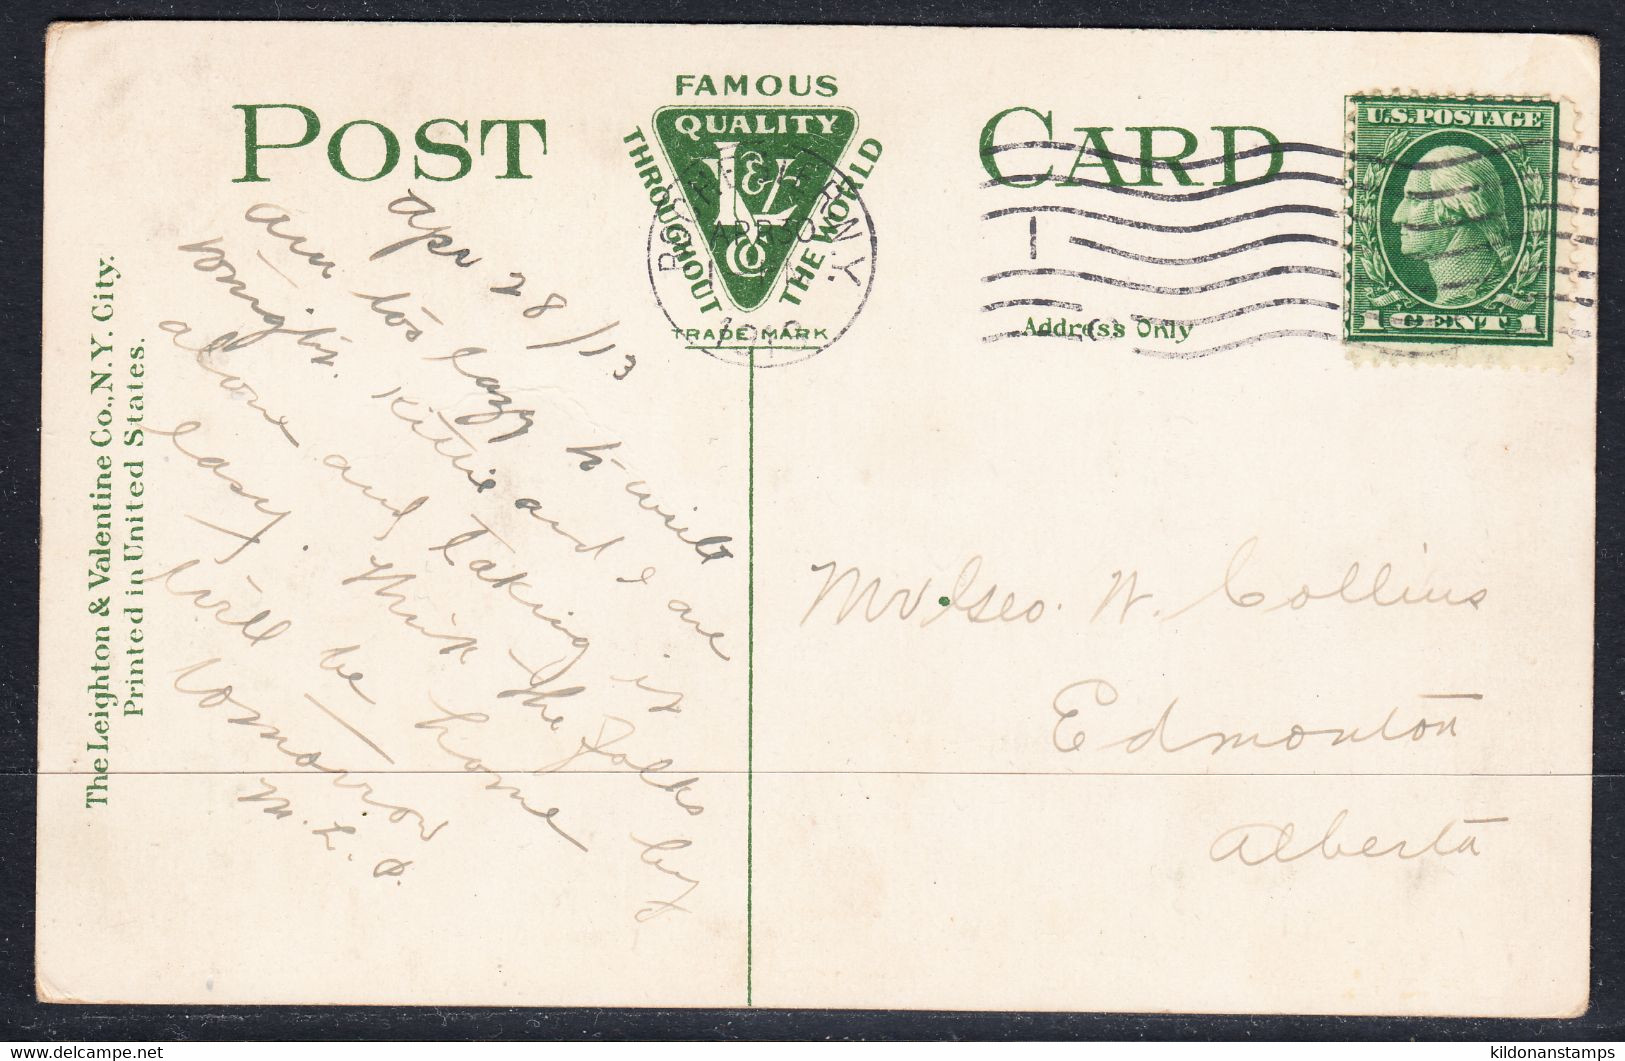 POST CARD
FAMOUS
QUALITY
L & V
Co
THROUGHOUT THE WORLD
TRADE MARK
APR 30
N.Y.
1
U.S. POSTAGE
1 CENT 1
Address Only
The Leighton & Valentine Co., N.Y. City.
Printed in United States.
Apr 28/13
Am too lazy to write
tonight. Kittie and I are
alone and taking it
easy. Think the folks
will be home
tomorrow
M. L.
by
Mr. Geo. W. Collins
Edmonton
Alberta
kildonanstamps